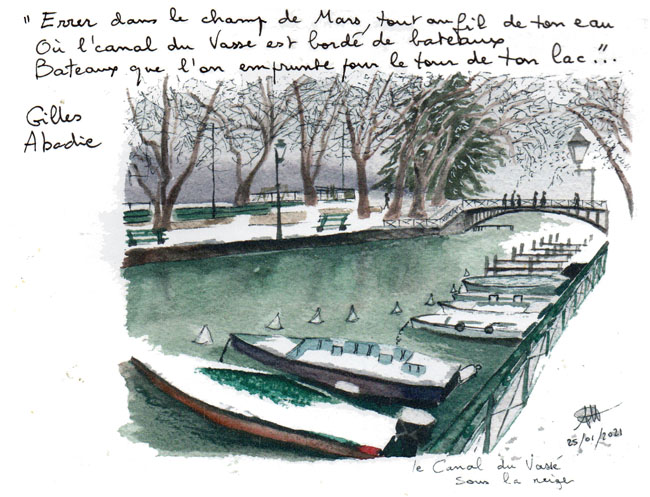 "Errer dans le champ de Mars, tout au fil de ton eau
Où l'canal du Vassé est bordé de bateaux
Bateaux que l'on emprunte pour le tour de ton lac..."
Gilles
Abadie
25/01/2021
le Canal du Vassé
sous la neige